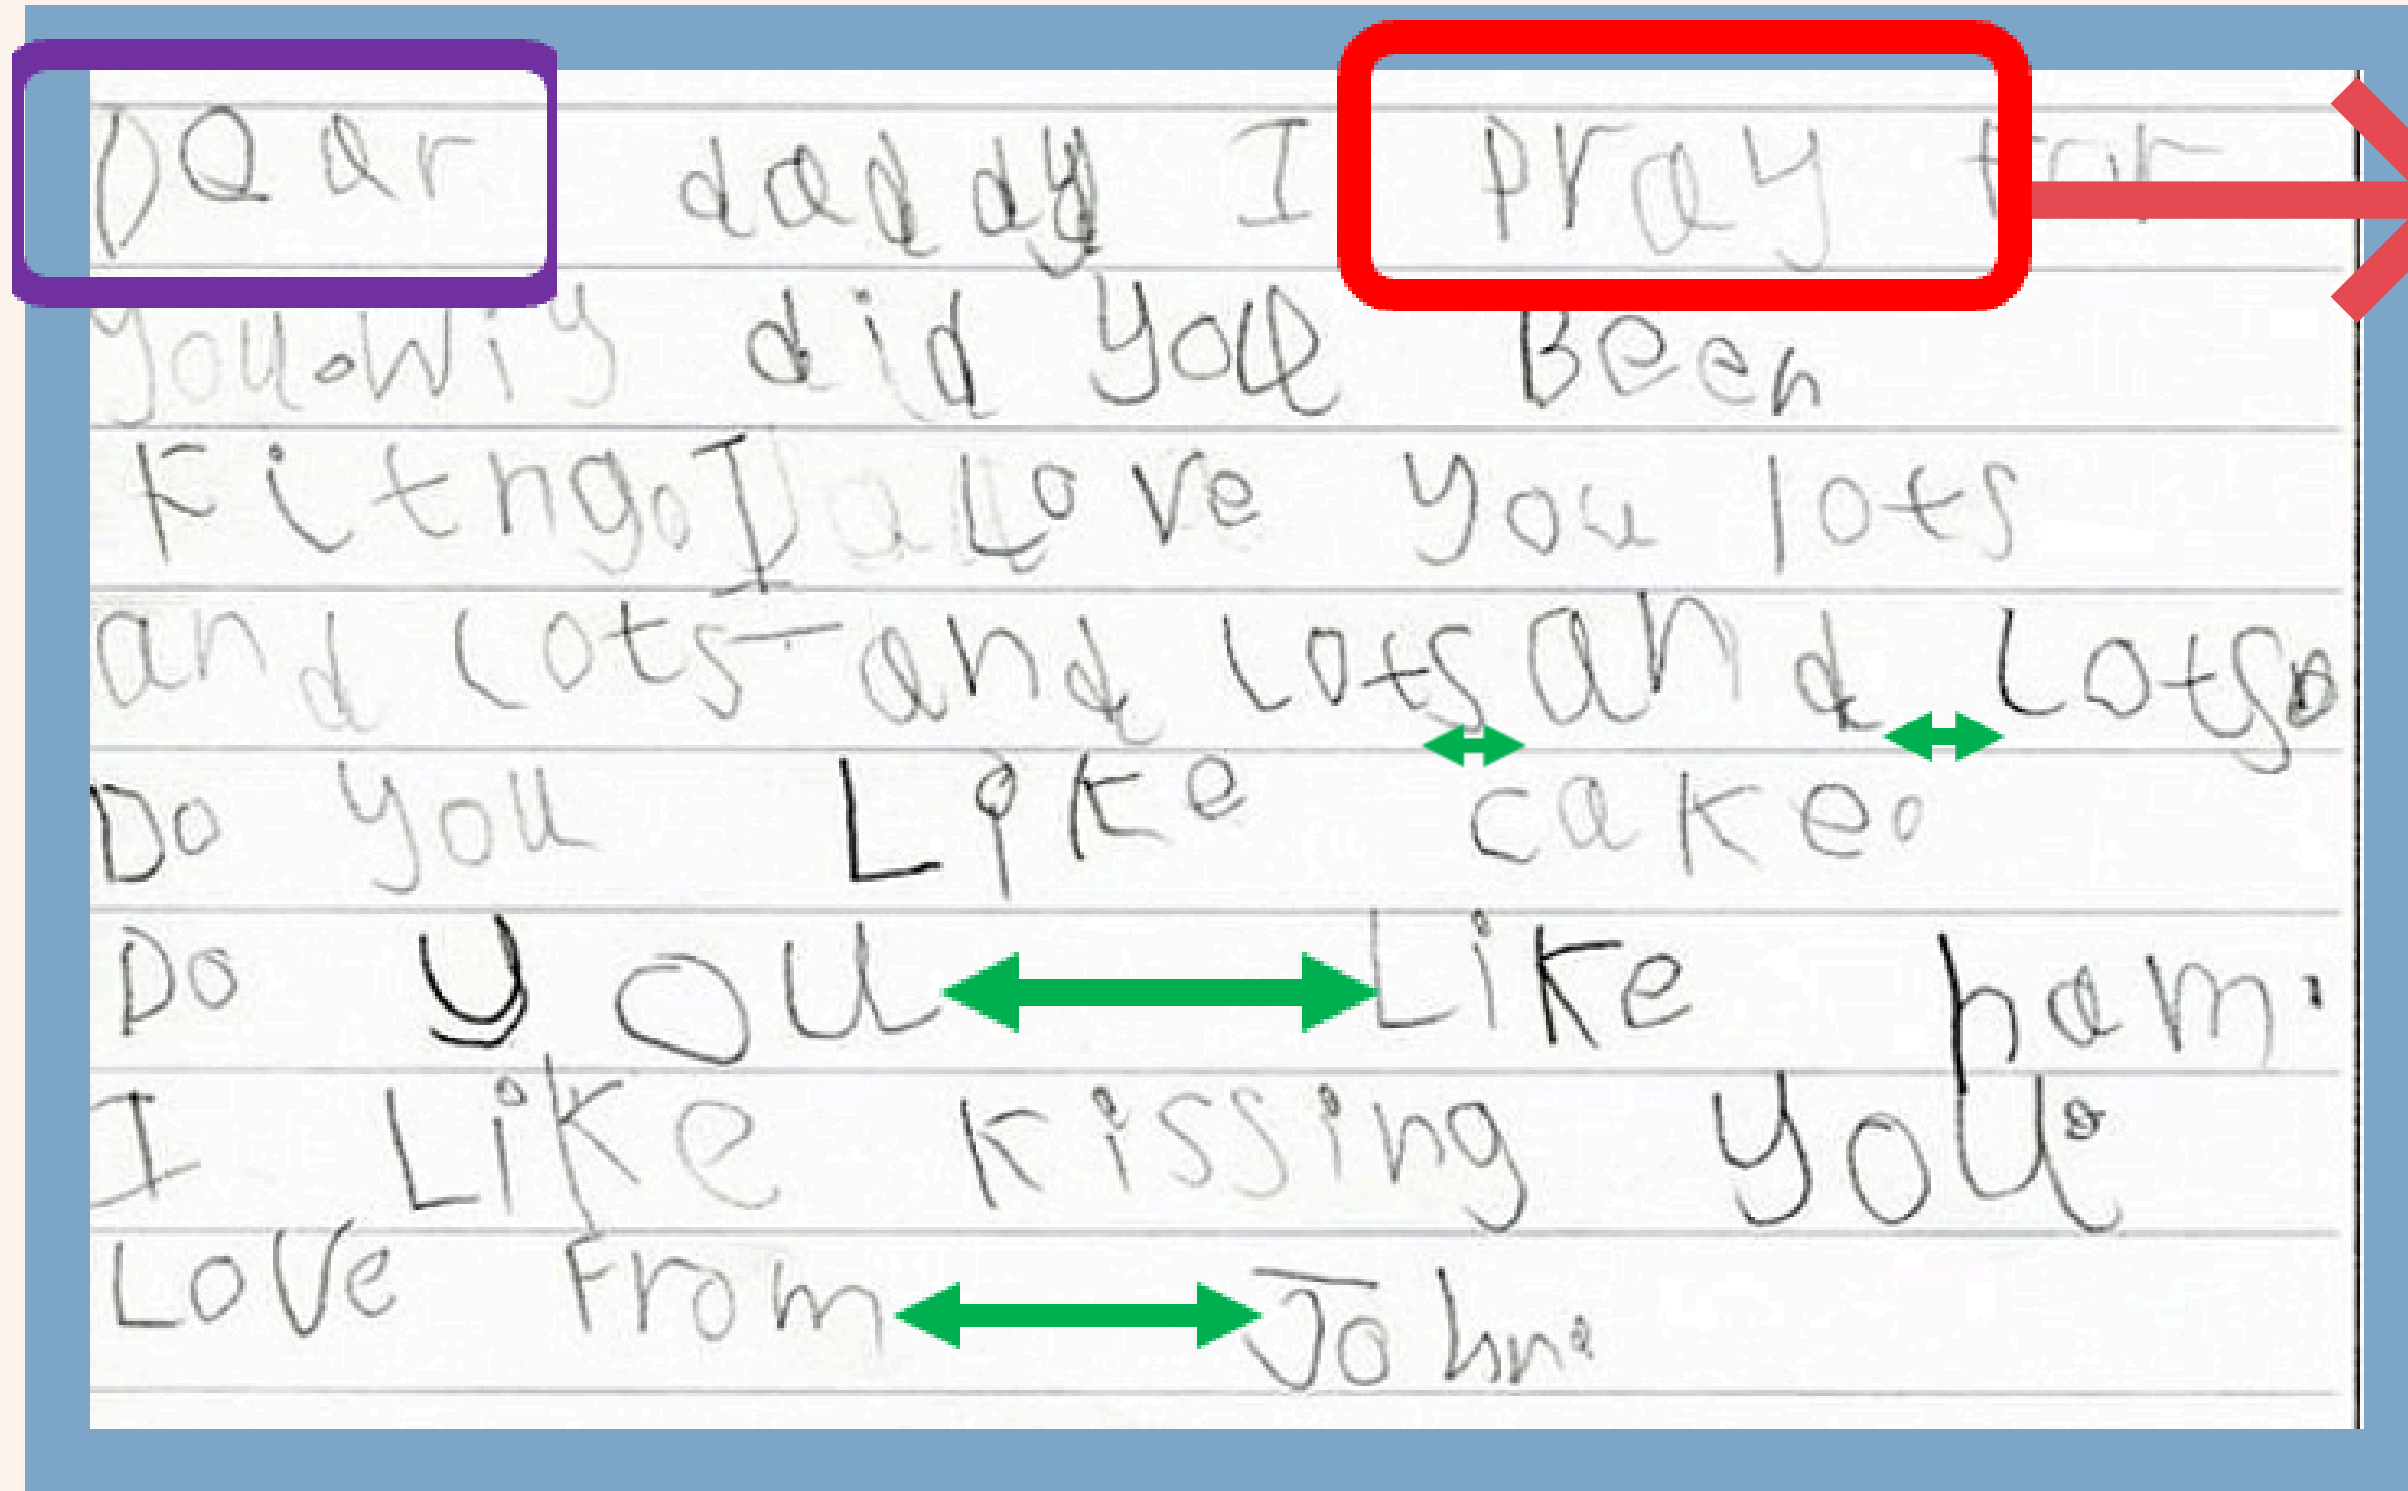 Dear daddy I Pray for
you. Wiy did you Been
Kitng. I Love you lots
and Lots and Lots and Lots.
Do you Like cake.
Do you Like ham.
I Like kissing you.
Love From John.